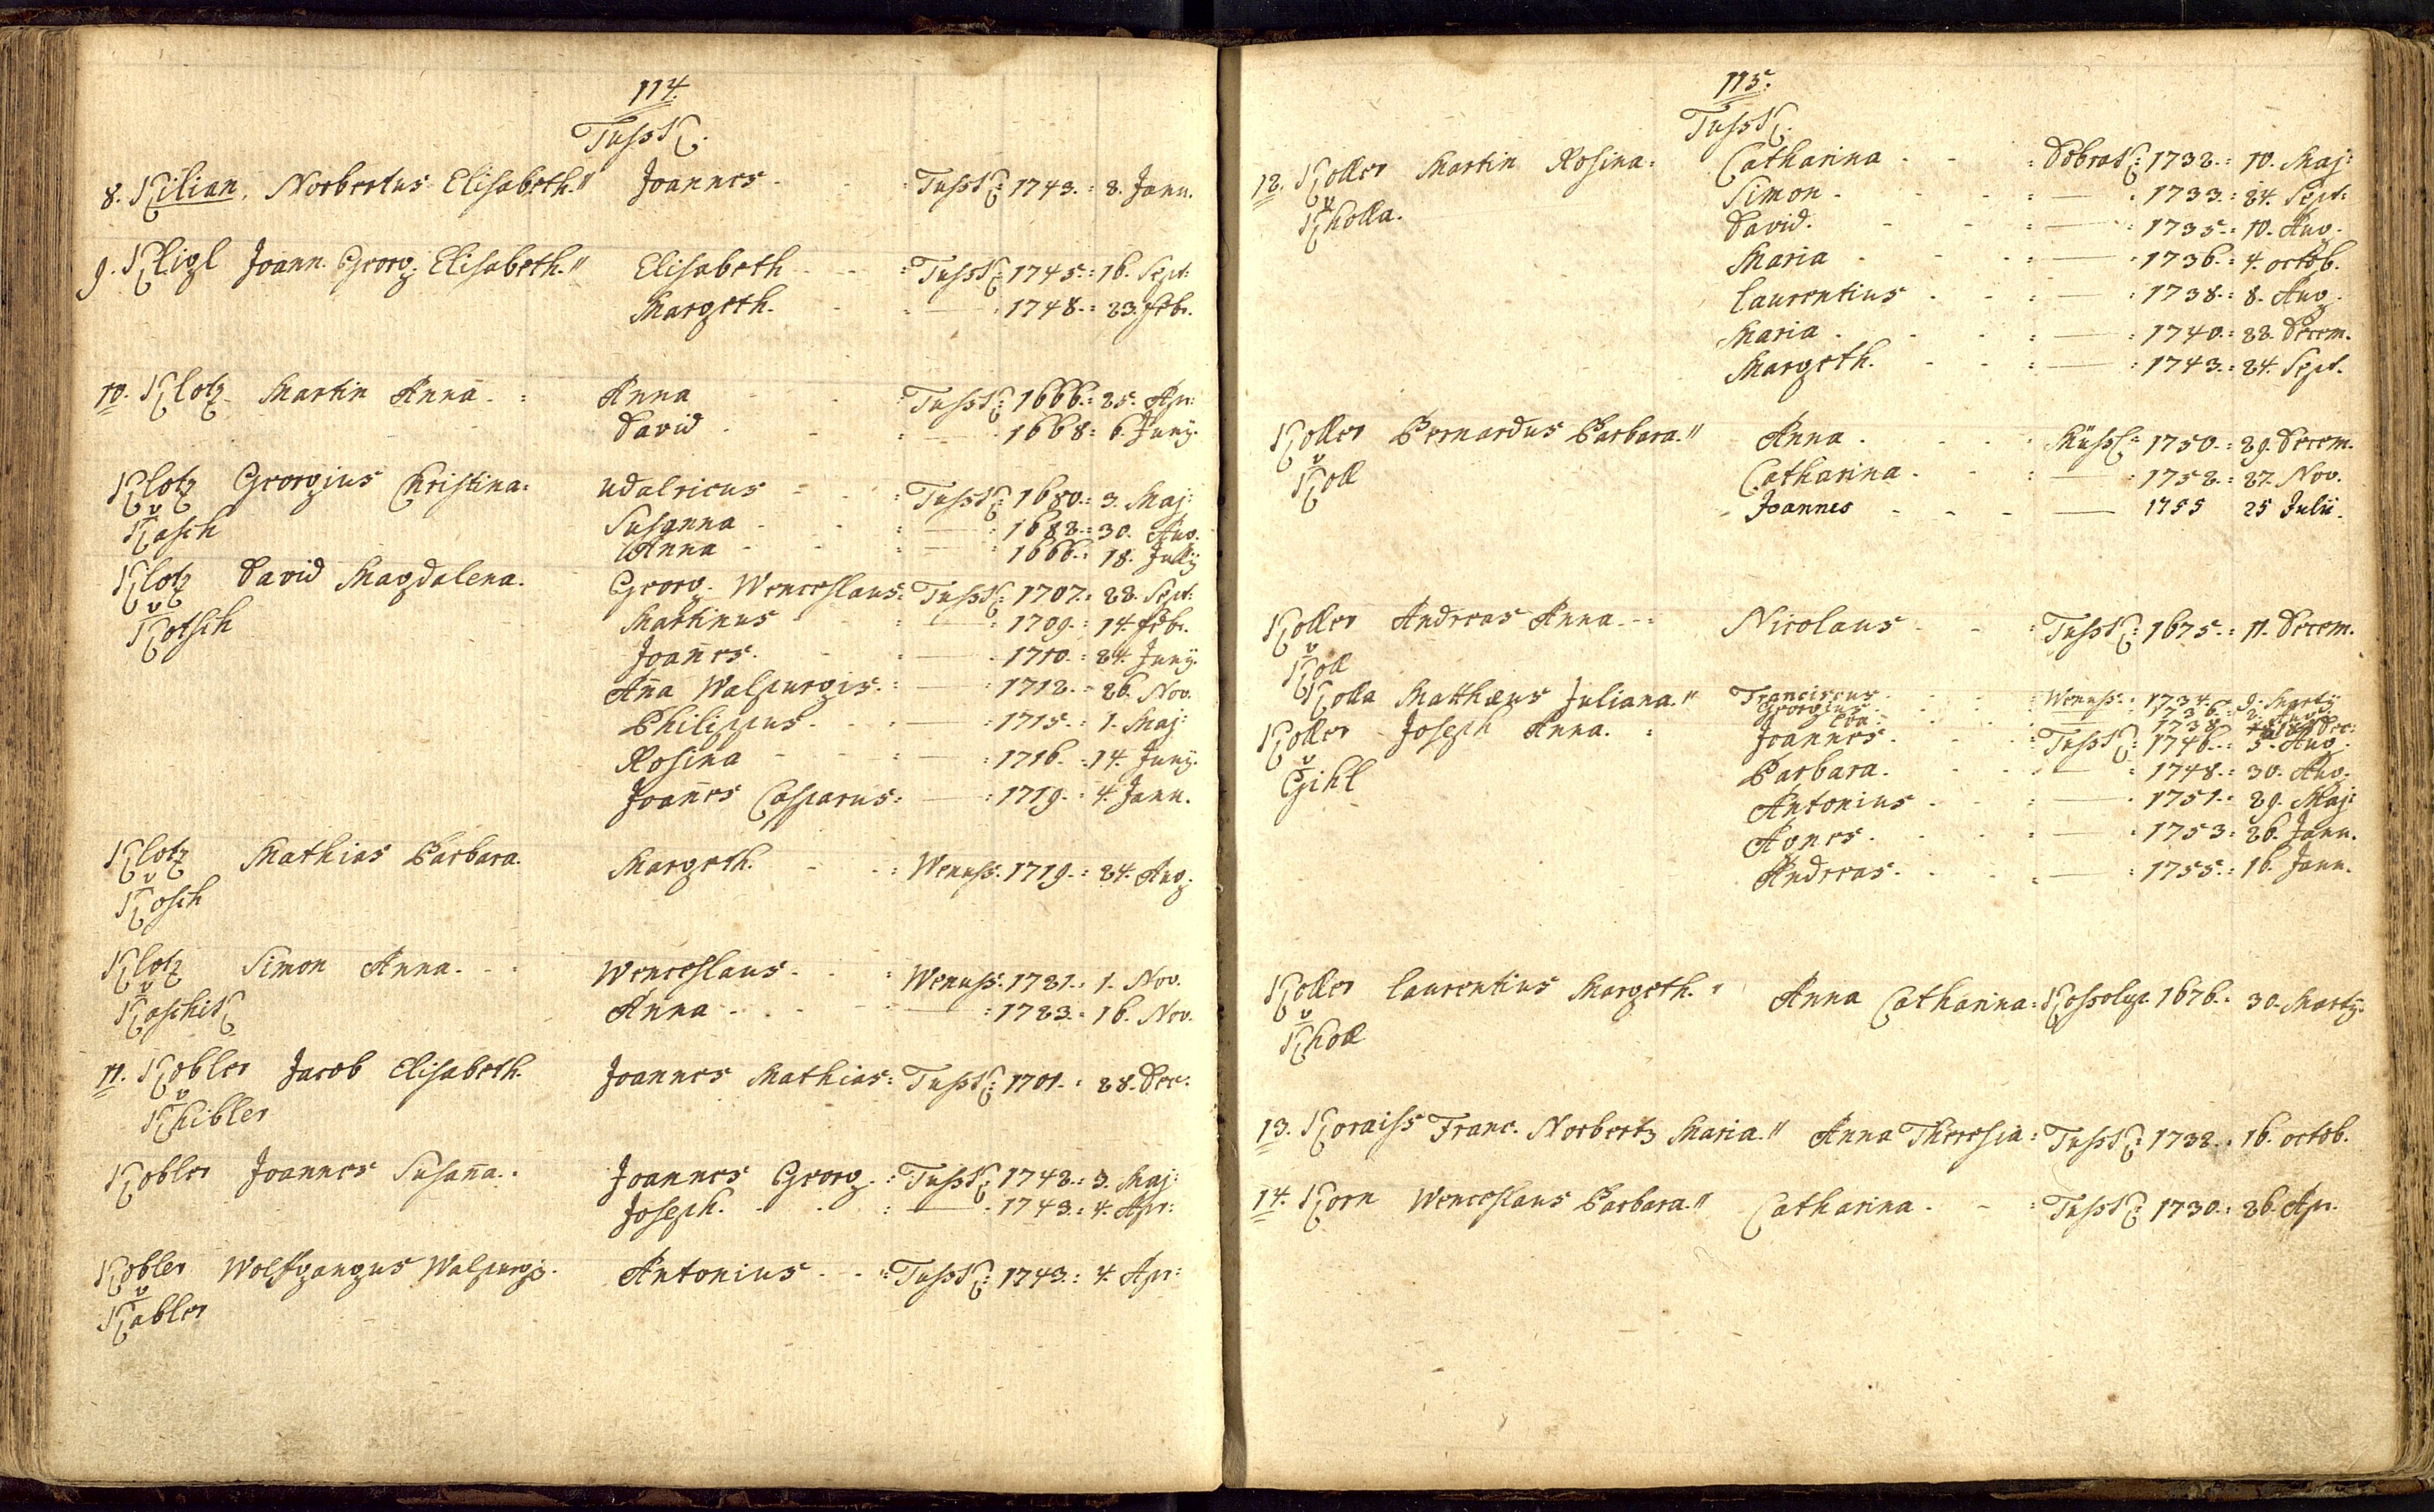 114.
Tussk:
8. Kilian. Norbertus Elisabeth." Joannes - - : Tussk: 1743.: 2. Janu.
9. Kligl Joann. Georg: Elisabeth." Elisabeth - - : Tussk: 1745.: 16. Sept:
Margeth. - : — : 1748.: 23. Feb.
10. Klotz Martin Anna. : Anna - : Tussk: 1666.: 25. Apr:
David - - : — . 1668: 6. Juny.
Klotz Georgius Christina: Udalricus - - : Tussk: 1680.: 3. Maj:
v
Kasch Susanna - : — : 1682.: 30. Aug.
Anna - - : — : 1666.: 18. Jully
Klotz David Magdalena. Georg. Wenceslaus: Tussk: 1707.: 22. Sept:
v
Kotsch Martinus - - : — : 1709.: 14. Feb.
Joañes. - : — . 1710.: 24. Juny.
Aña Walpurgis. : — : 1712.: 26. Nov.
Philippus. - : — : 1715.: 1. Maj:
Rosina - - : — : 1716.: 14. Juny.
Joañes Casparus: — : 1719.: 4. Janu.
Klotz Mathias Barbara. Margeth. - : Wenuss. 1719.: 24. Aug.
v
Kosch
Klotz Simon Anna. - : Wenceslaus. - : Wenuss. 1721.: 1. Nov.
v
Kaschik Anna - . - — : 1723.: 16. Nov.
11. Kobler Jacob Elisabeth. Joannes Mathias: Tussk: 1701.: 28. Dec:
v
Khibler
Kobler Joannes Susaña. : Joannes Georg. : Tussk: 1742.: 3. Maj:
Joseph. - . : — . 1743.: 4. Apr:
Kobler Wolfgangus Walpurg. Antonius - - : Tussk: 1743.: 4. Apr:
v
Kabler
115.
Tussk:
12. Koller Martin Rosina: Catharina - - : Dobrak: 1732.: 10. Maj:
v
Kholla. Simon - - : — : 1733.: 24. Sept:
David. - - : — : 1735.: 10. Aug.
Maria - - : — : 1736.: 4. octob.
Laurentius - - : — : 1738.: 8. Aug.
Maria - - : — : 1740.: 22. Decem.
Margeth. - - : — : 1743.: 24. Sept.
Koller Bernardus Barbara." Anna - - : 1750.: 29. Decem.
v
Koll Catharina - - : — : 1752.: 27. Nov.
Joannes - - - — 1755 25 Julii.
Koller Andreas Anna - : Nicolaus - - : Tussk: 1675.: 11. Decem.
v
Koll
Kolla Matthæus Juliana." Franciscus - : Wenuss. : 1734.: 9. Marty
Georgius - : — : 1736.: 2. Aug.
Eva - : — : 1738. Dec:
Koller Joseph Anna. : Joannes. - : Tussk: 1746.: 5. Aug.
v
Gihl Barbara. - : — : 1748.: 30. Aug.
Antonius - - : — . 1751.: 29. Maj:
Agnes. - : — : 1753: 26. Janu.
Andreas. - : — : 1755.: 16. Janu.
Koller Laurentius Margeth. : Anna Catharina: Kossolup. 1676.: 30. Marty.
v
Kholl
13. Koraiss Franc. Norbert9 Maria." Anna Theresia: Tussk: 1732.: 16. octob.
14. Korn Wenceslaus Barbara." Catharina - - : Tussk: 1730.: 26. Apr.